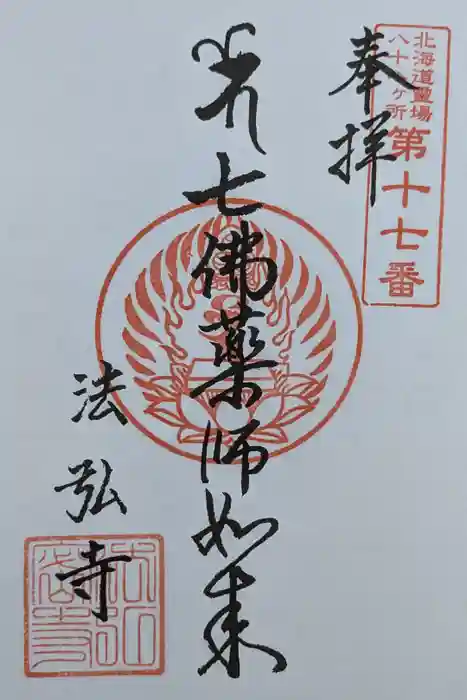 北海道霊場
八十八ヶ所
第十七番
奉拝
七佛薬師如来
法弘寺